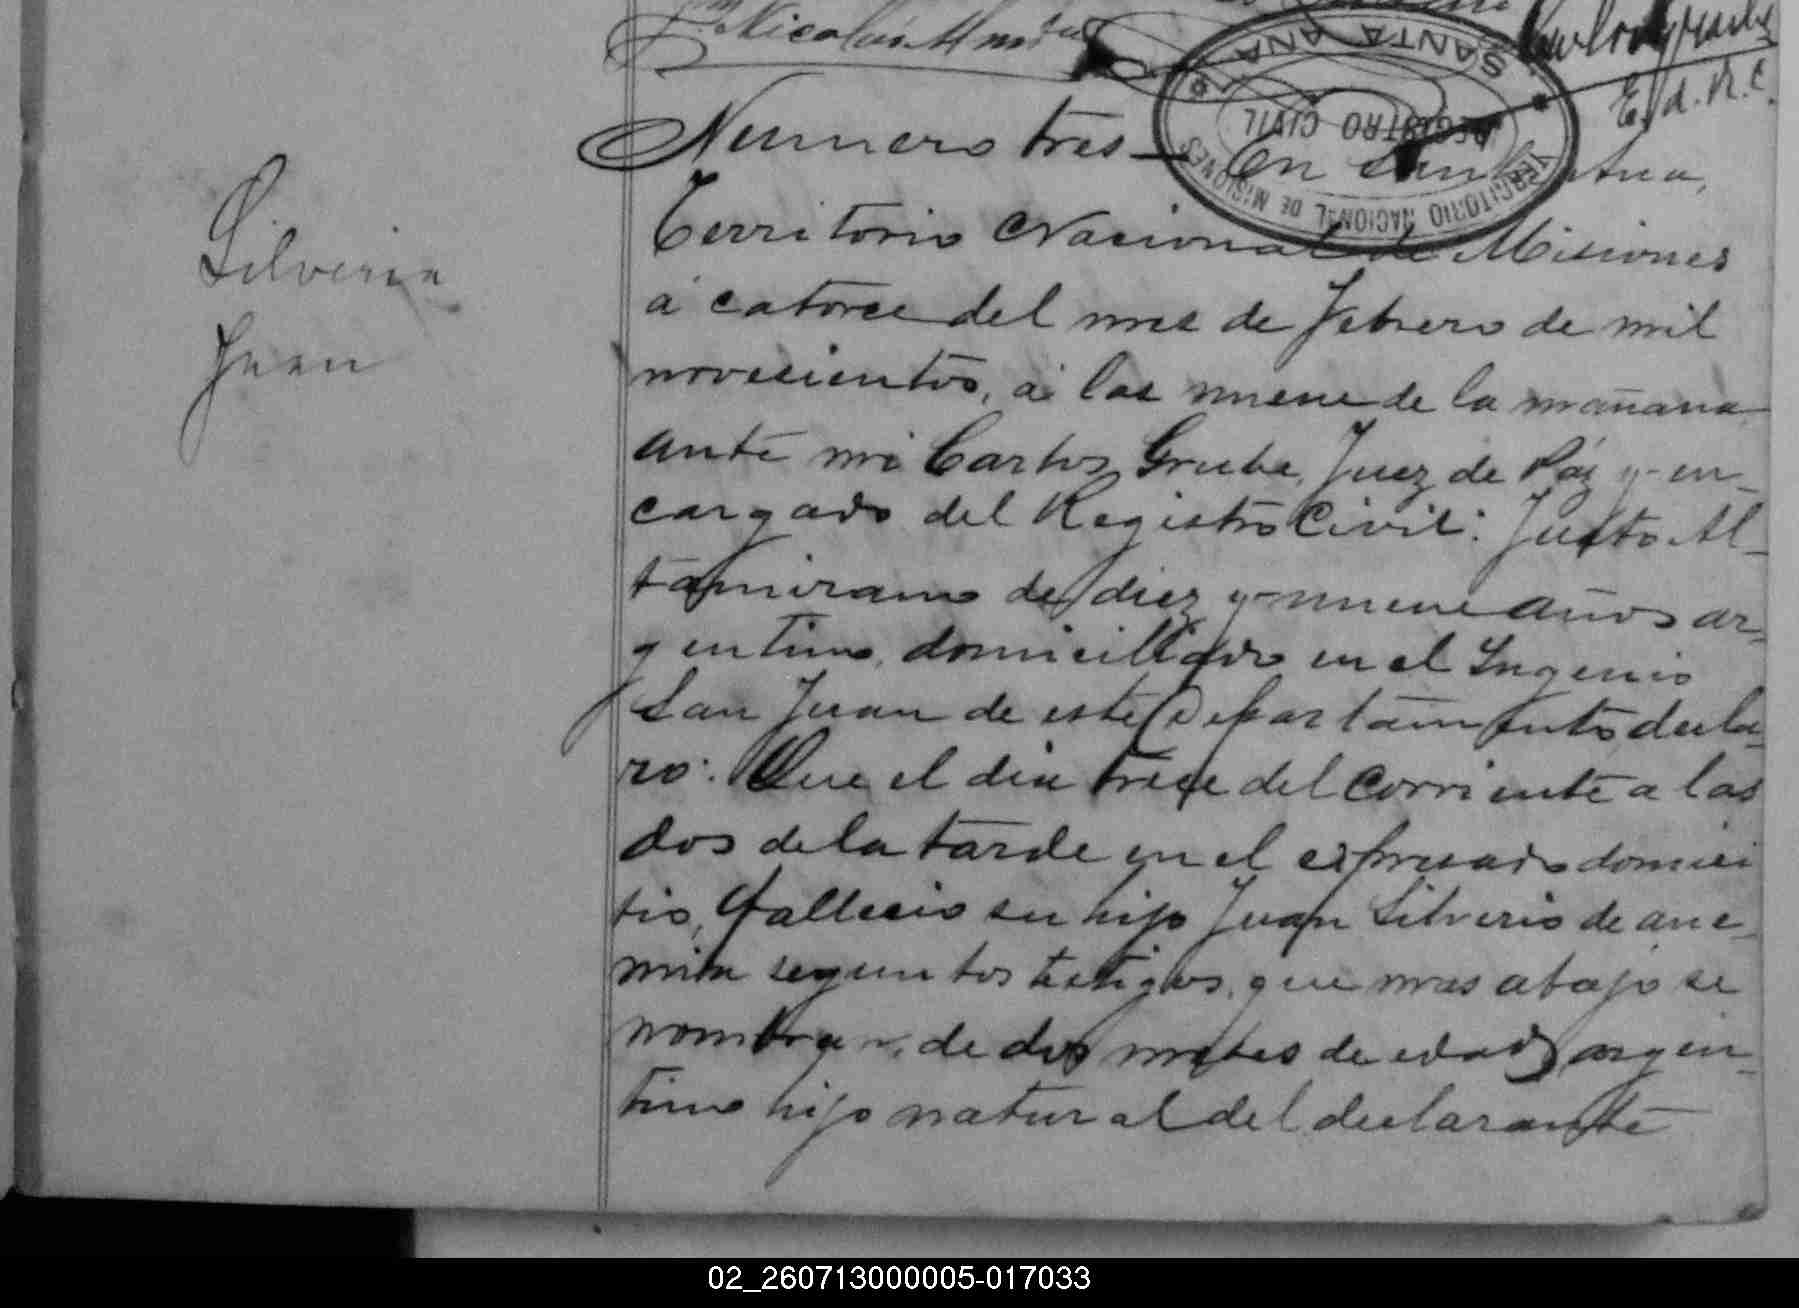 Nicolás
E. d. R. C.
SANTA ANA
REGISTRO CIVIL
TERRITORIO NACIONAL DE MISIONES
Numero tres — En Santa Ana,
Territorio Nacional de Misiones
á catorce del mes de Febrero de mil
novecientos, á las nueve de la mañana
ante mi Carlos Grube, Juez de Páz y en-
cargado del Registro Civil: Justo Al-
tamirano de diez y nueve años ar-
gentino, domicilliado en el Ingenio
San Juan de este Departamento, decla-
ro: Que el dia trece del corriente a las
dos de la tarde en el expresado domici
lio, fallecio su hijo Juan Silverio de ane-
mia segun los testigos, que mas abajo se
nombran, de dos meses de edad, argen-
tino hijo natural del declarante
Silverio
Juan
02_260713000005-017033